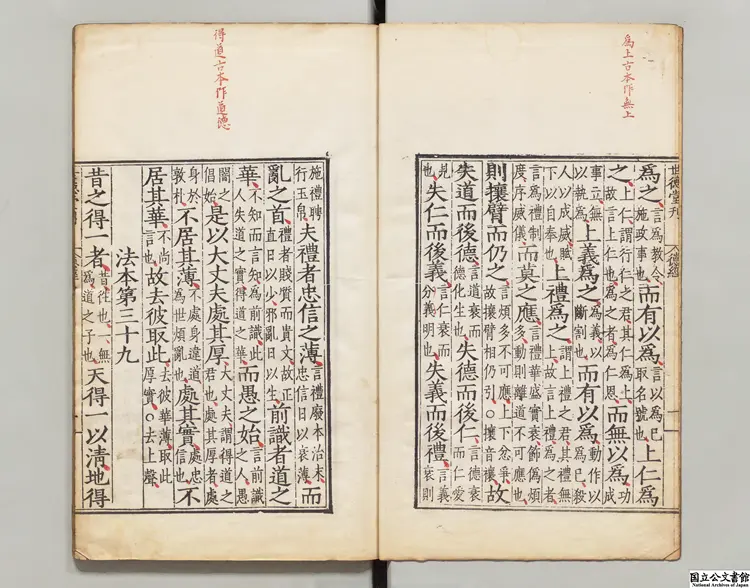 為上古本作無上
世德堂刊
德經
為之言為教令施政事也而有以為言以為己取名號也上仁為
之上仁謂行仁之君其仁為上故言上仁也為之者為仁恩而無以為功成
事立無以執為上義為之為義以斷割也而有以為動作以為己殺
人以成威賦下以自奉也上禮為之謂上禮之君其禮無上故言上禮為之者
言為禮制度序威儀而莫之應言禮華盛實衰飾偽煩多動則離道不可應也
則攘臂而仍之言煩多不可應上下忿爭故攘臂相仍引○攘音攘故
失道而後德言道衰而德化生也失德而後仁言德衰而仁愛
見也失仁而後義言仁衰而分義明也失義而後禮言義衰則
得道古本作道德
施禮聘行玉帛夫禮者忠信之薄言禮廢本治末忠信日以衰薄而
亂之首禮者賤質而貴文故正直日以少邪亂日以生前識者道之
華不知而言知為前識此人失道之實得道之華而愚之始言前識之人愚
闇之倡始是以大丈夫處其厚大丈夫謂得道之君也處其厚者處
身於敦朴不居其薄不處身違道為世煩亂也處其實處忠信也不
居其華不尚言也故去彼取此去彼華薄取此厚實○去上聲
法本第三十九
昔之得一者昔往也一無為道之子也天得一以清地得
国立公文書館
National Archives of Japan